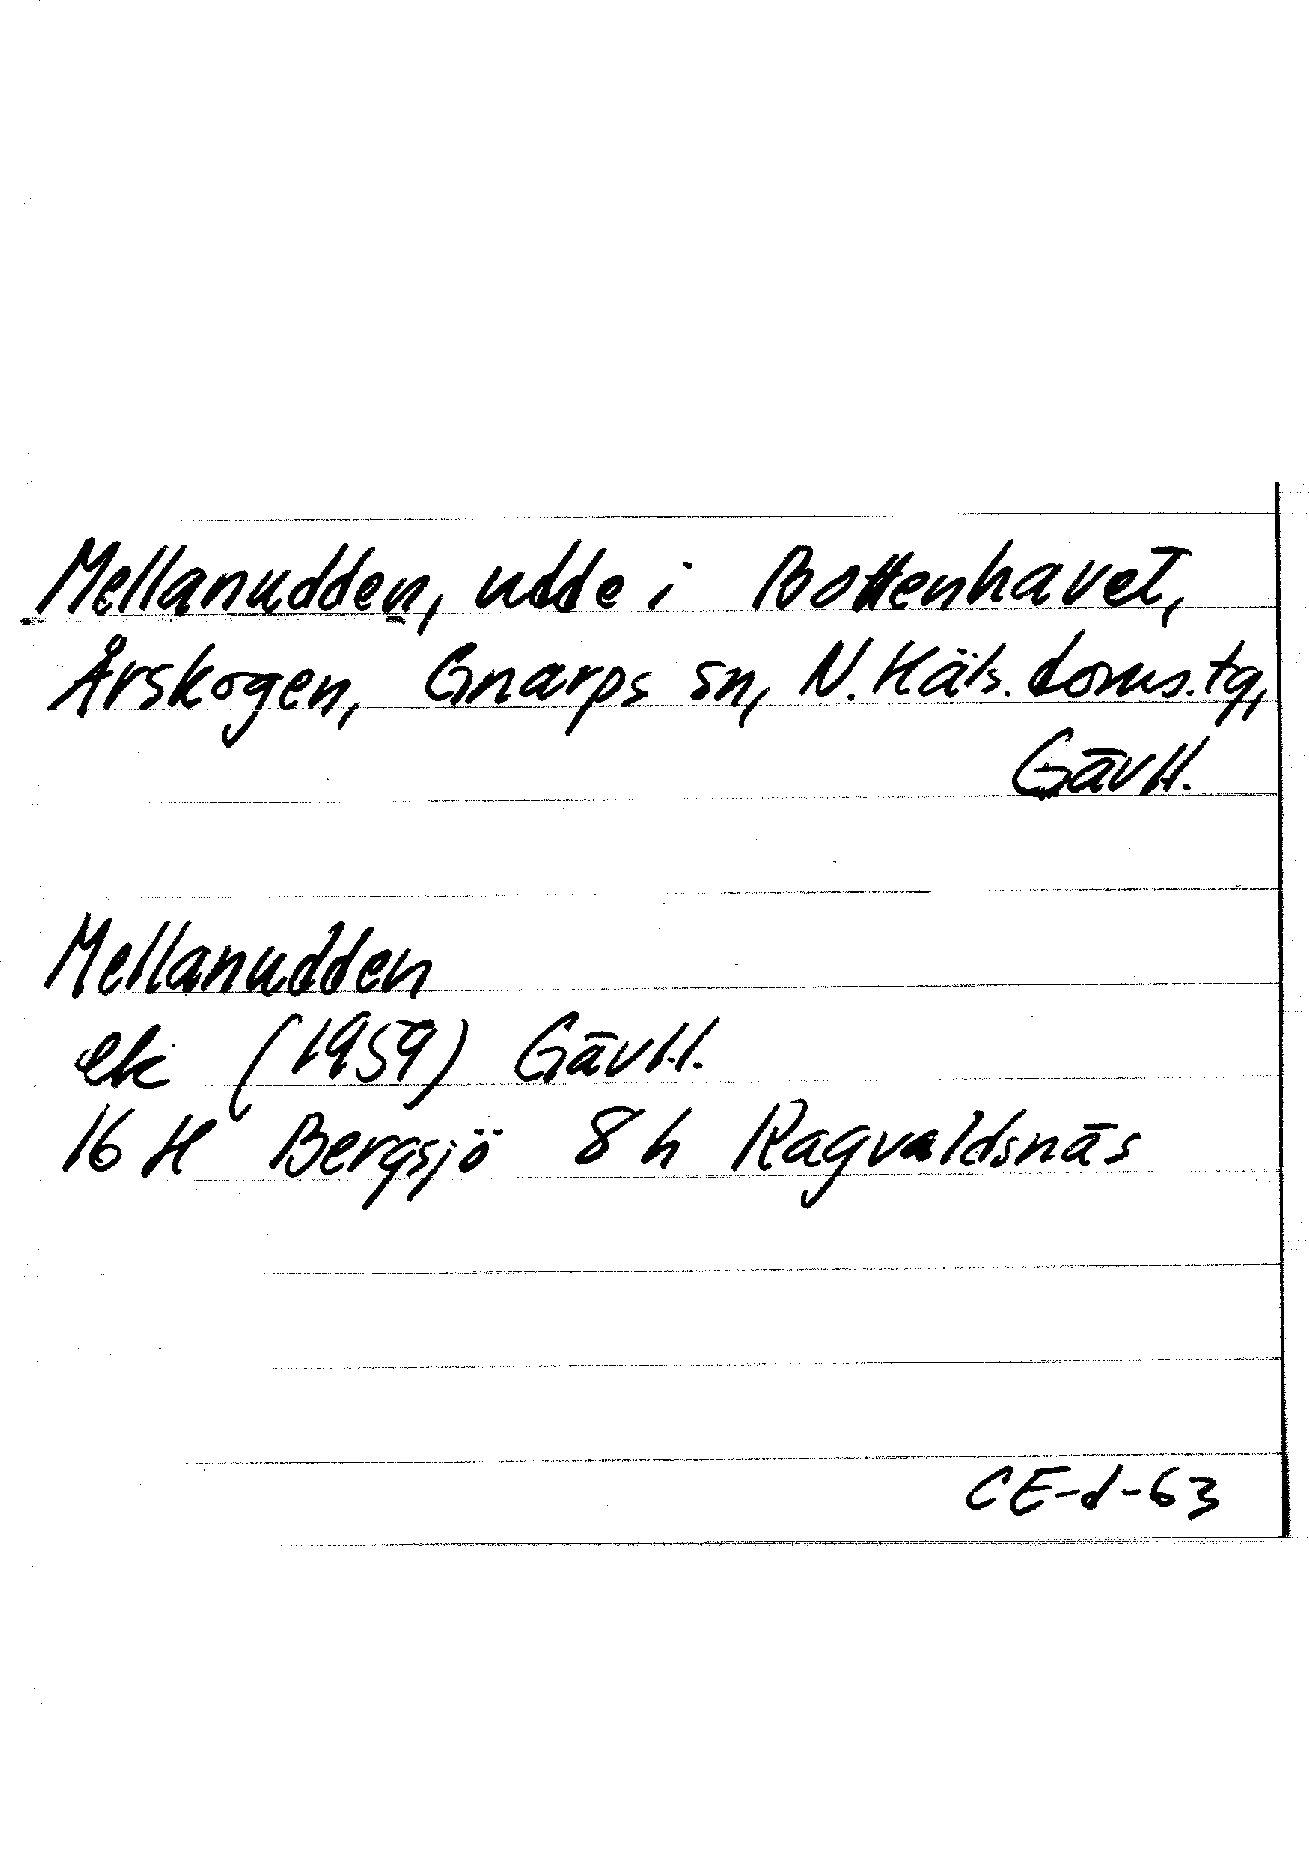 Mellanudden, udde i Bottenhavet,
Årskogen, Gnarps sn, N. Häls. doms.tg,
GävH.
Mellanudden
ek (1959) GävH.
16 H Bergsjö 8 h Ragvaldsnäs
CE-d-63